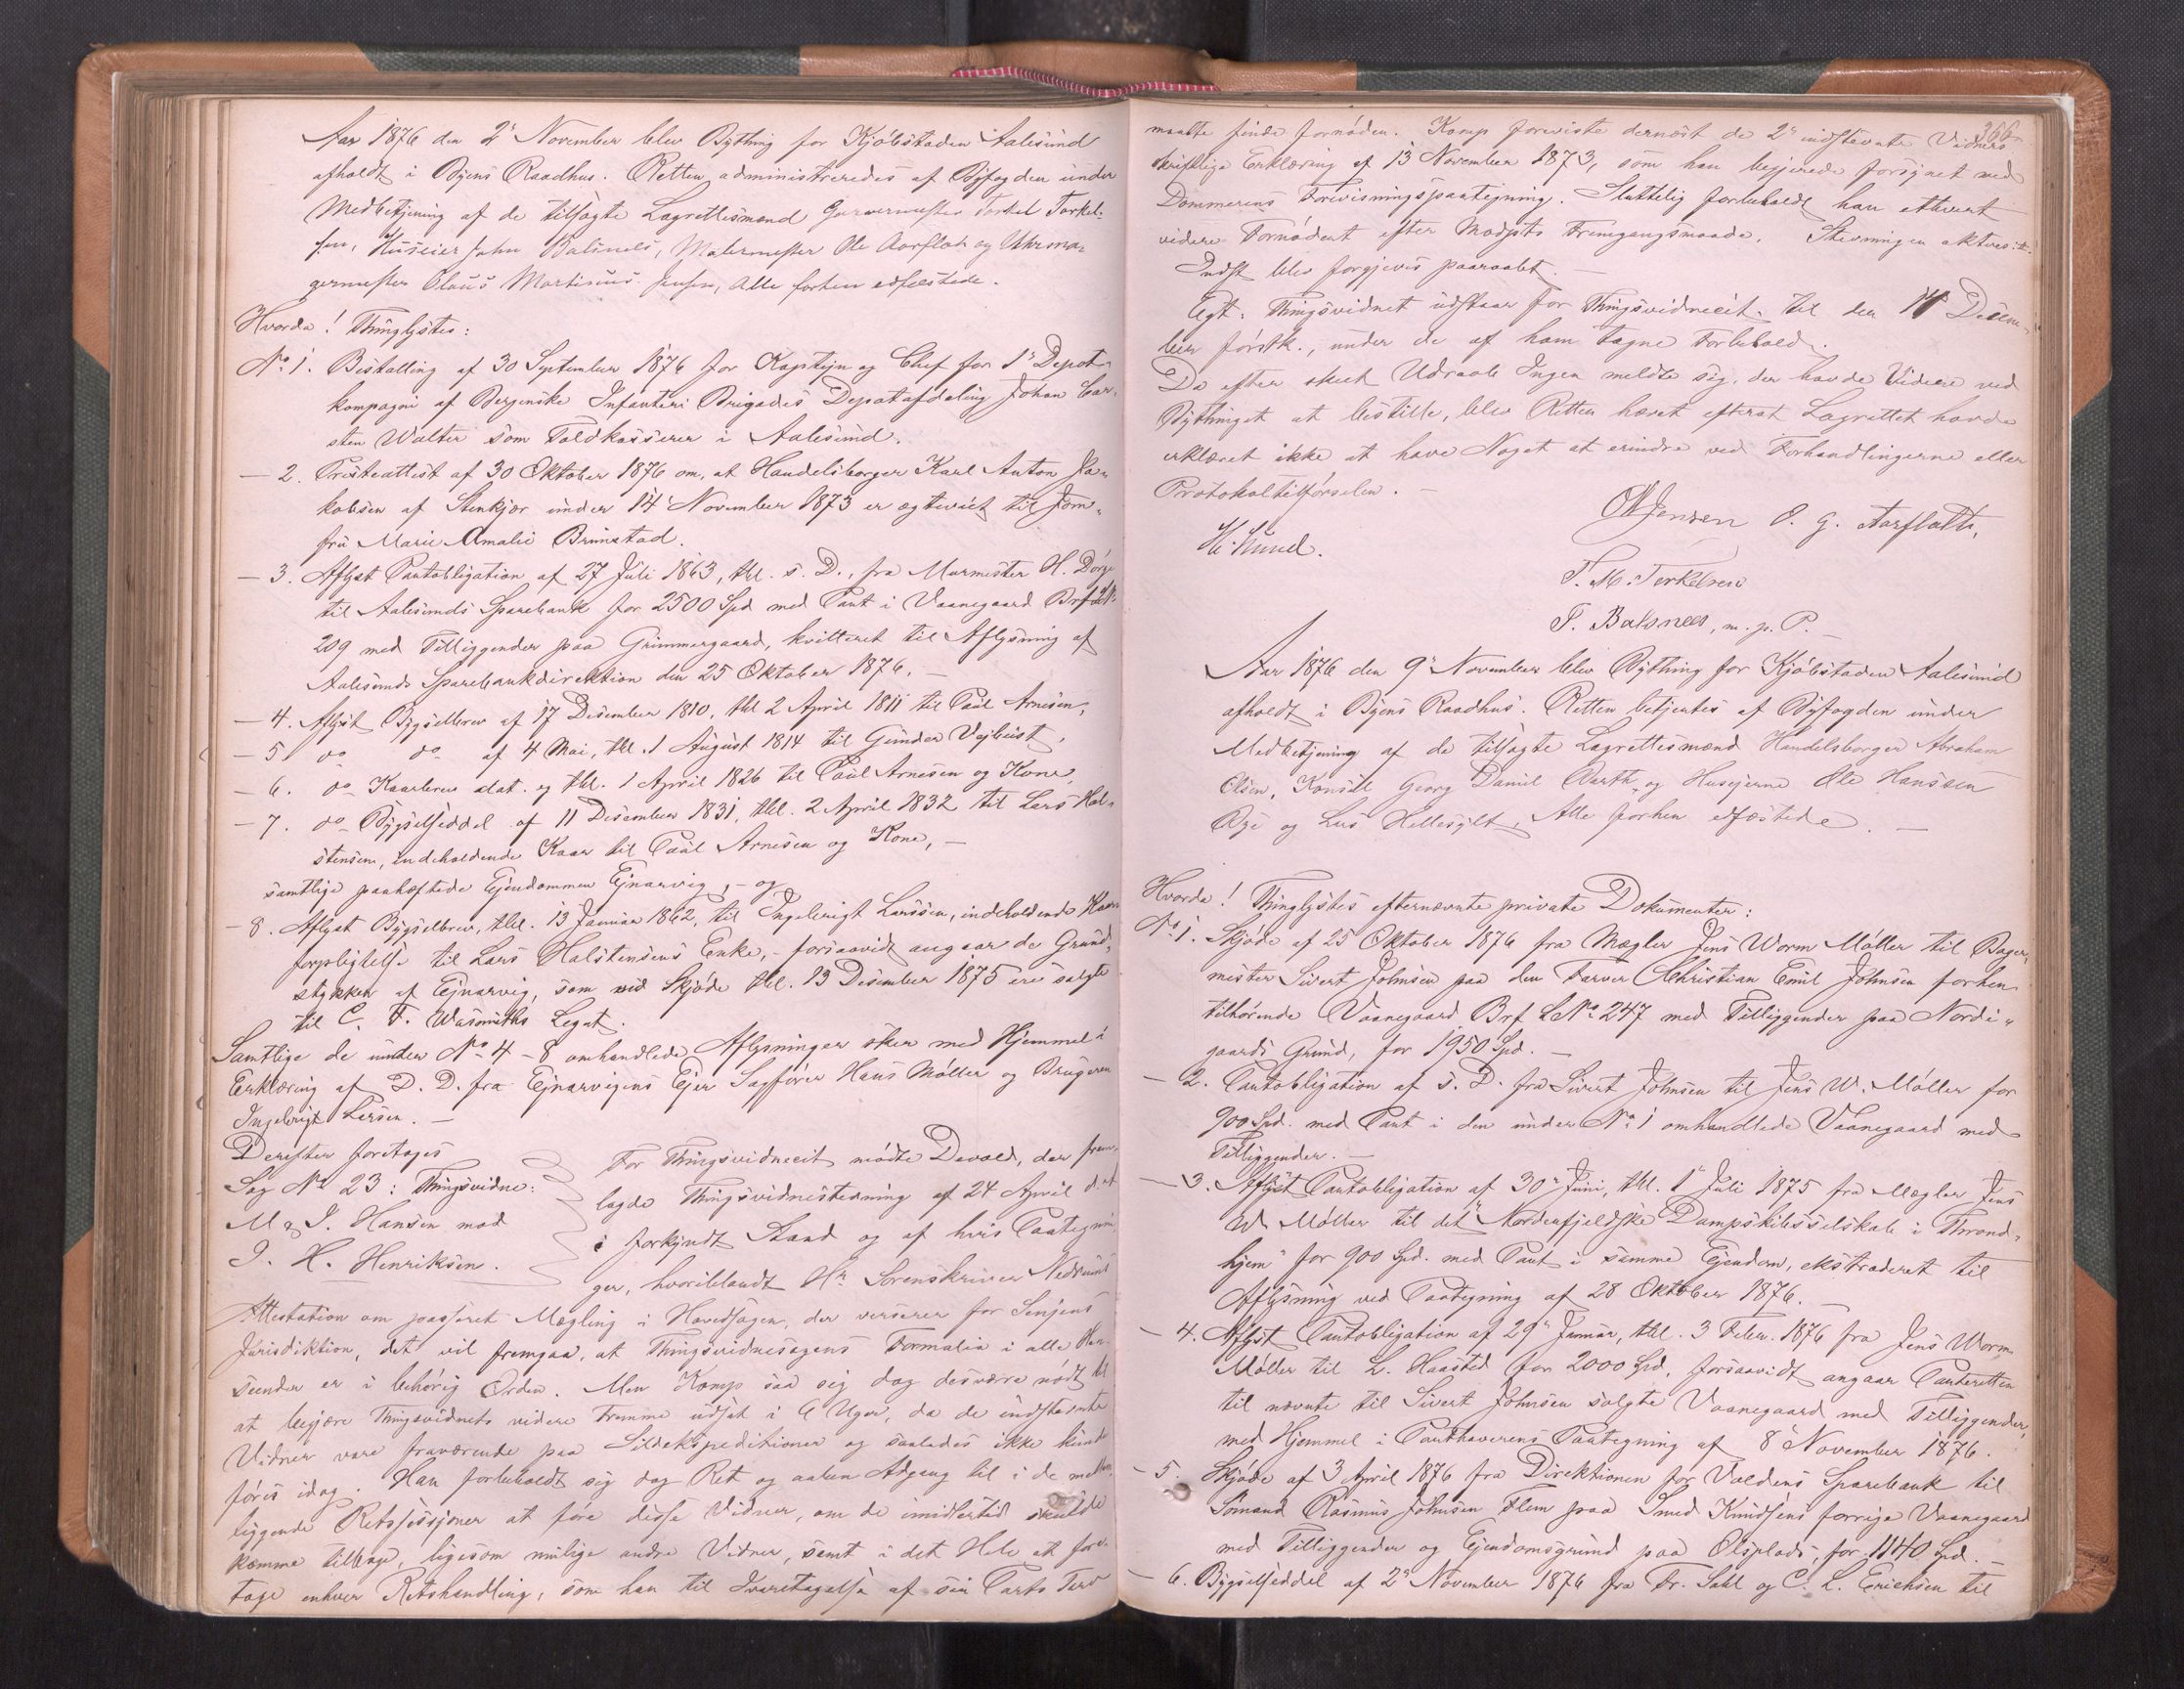 Aar 1876 den 2' November blev Bything for Kjøbstaden Aalesund
afholdt i Byens Raadhus. Retten administreredes af Byfogden under
Medbetjening af de tilsagte Lagrettesmænd Garvermester Torkel Torkel-
sen, Huseier John Balsnes, Malermester Ole Aarflot og Uhrma-
germester Claus Martinus Jensen, alle forhen edfæstede.
Hvorda! Thinglystes:
No 1. Bestalling af 30 September 1876 for Kaptejn og Chef for 1' Depot-
kompagni af Bergenske Infanteri Brigades Depotafdeling Johan Car-
sten Walter som Toldkasserer i Aalesund.
— 2. Presteattest af 30 Oktober 1876 om, at Handelsborger Karl Anton Ja-
kobsen af Stenkjær under 14 November 1873 er ægteviet til Jom-
fru Marie Amalie Brunstad.
— 3. Aflyst Pantobligation af 27 Juli 1863, thl. s. D., fra Murmester H. Dörge
til Aalesunds Sparebank for 2500 Spd med Pant i Vaanegaard Brf L No
209 med Tilliggender paa Grimmergaard, kvitteret til Aflysning af
Aalesunds Sparebankdirektion den 25 Oktober 1876. —
— 4. Aflyst Bygselbrev af 17 Desember 1810, thl 2 April 1811 til Paul Arnesen,
— 5 do do af 4 Mai, thl. 1 August 1814 til Gunder Vejbust,
— 6. do Kaarbrev dat. og thl. 1 April 1826 til Paul Arnesen og Kone,
— 7. do Bygselseddel af 11 Desember 1831, thl. 2 April 1832 til Lars Hal-
stensen, indeholdende Kaar til Paul Arnesen og Kone, —
samtlige paahæftede Ejendommen Ejnarvig, — og
— 8. Aflyst Bygselbrev, thl. 13 Januar 1862, til Ingebrigt Larssen, indeholdende Kaar
forpligtelse til Lars Halstensens Enke, — forsaavidt angaar de Grund-
stykker af Ejnarvig, som ved Skjøde thl. 13 Desember 1875 ere solgte
til C. F. Wasmuths Legat.
Samtlige de under No 4 – 8 omhandlede Aflysninger sker med Hjemmel i
Erklæring af D. D. fra Ejnarvigens Ejer Sagfører Hans Møller og Brugeren
Ingebrigt Larsen. —
Derefter foretoges
Sag No 23: Thingsvidne:
M. J. Hansen mod
J. H. Henriksen.
For Thingsvidnecit. mødte Devold, der frem-
lagde Thingsvidnestevning af 24 April d. A.
i forkyndt Stand og af hvis Paategnin-
ger, hvoriblandt Hr Sorenskriver Nedrums
Attestation om passeret Mægling i Hovedsagen, der verserer for Senjens
Jurisdiktion, det vil fremgaa, at Thingsvidnesagens Formalia i alle Hen-
seender er i behørig Orden. Men Komp saa sig dog desværre nødt til
at begjære Thingsvidnets videre Fremme udsat i 6 Uger, da de indstevnte
Vidner vare fraværende paa Sildekspeditioner og saaledes ikke kunde
føres idag. Han forbeholdt sig dog Ret og aaben Adgang til i de mellem-
liggende Retssessjoner at føre disse Vidner, om de imidlertid skulde
komme tilbage, ligesom mulige andre Vidner, samt i det Hele at fore-
tage enhver Retshandling, som han til Iveretagelse af sin Parts Tarv
366
maatte finde fornøden. Komp foreviste dernæst de 2de indstevnte Vidners
skriftlige Erklæring af 13 November 1873, som han begjerede forsynet med
Dommerens Forevisningspaategning. Sluttelig forbeholdt han ethvert
videre Fornødent efter Modpts Fremgangsmaade. Stevningen akteres:
Indst blev forgjeves paaraabt. —
Egt. Thingsvidnet udstaar for Thingsvidnecit. til den 14 Decem-
ber førstk., under de af ham tagne Forbehold.
Da efter skeet Udraab Ingen meldte sig, der havde Videre ved
Bythinget at bestille, blev Retten hævet efterat Lagrettet havde
erklæret ikke at have Noget at erindre ved Forhandlingerne eller
Protokoltilførselen. —
CMJensen O. G. Aarflodt,
H. Lund.
T. M. Torkelsen
J. Balsnes, m. p. P.
Aar 1876 den 9' November blev Bything for Kjøbstaden Aalesund
afholdt i Byens Raadhus. Retten betjentes af Byfogden under
Medbetjening af de tilsagte Lagrettesmænd Handelsborger Abraham
Olsen, Konsul Georg Daniel Barth og Husejerne Ole Hanssen
Rye og Lars Hellesylt, Alle forhen edfæstede. —
Hvorda! Thinglystes efternævnte private Dokumenter:
No 1. Skjøde af 25 Oktober 1876 fra Mægler Jens Worm Møller til Bager-
mester Sivert Johnsen paa den Farver Christian Emil Johnsen forhen
tilhørende Vaanegaard Brf L No 247 med Tilliggender paa Nordi-
gaards Grund, for 1950 Spd. —
— 2. Pantobligation af s. D. fra Sivert Johnsen til Jens W. Møller for
900 Spd. med Pant i den under No 1 omhandlede Vaanegaard med
Tilliggender. —
— 3. Aflyst Pantobligation af 30' Juni, thl. 1' Juli 1875 fra Mægler Jens
W Møller til det Nordenfjeldske Dampskibsselskab i Thrond-
hjem for 900 Spd. med Pant i samme Ejendom, ekstraderet til
Aflysning ved Paategning af 28 Oktober 1876. —
— 4. Aflyst Pantobligation af 29' Januar, thl. 3 Febr. 1876 fra Jens Worm
Møller til L. Haasted for 2000 Spd, forsaavidt angaar Panteretten
til nævnte til Sivert Johnsen solgte Vaanegaard med Tilliggender,
med Hjemmel i Panthaverens Paategning af 8' November 1876.
— 5. Skjøde af 3 April 1876 fra Direktionen for Voldens Sparebank til
Sömand Rasmus Johnsen Flem paa Smed Knudsens forrige Vaanegaard
med Tilliggender og Ejendomsgrund paa Olsplads, for 1140 Spd. —
— 6. Bygselseddel af 2' November 1876 fra Fr. Dahl og C. L. Erichsen til